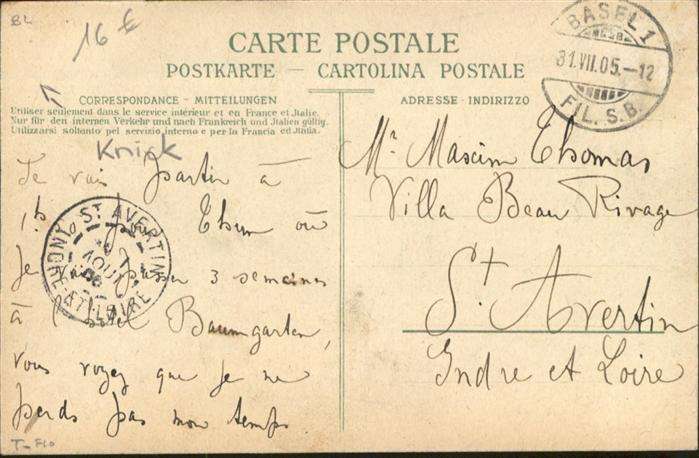 BL
16 €
CARTE POSTALE
POSTKARTE — CARTOLINA POSTALE
BASEL 1
31.VII.05.–12
FIL. S.B.
CORRESPONDANCE - MITTEILUNGEN
Utiliser seulement dans le service intérieur et en France et Italie.
Nur für den internen Verkehr und nach Frankreich und Italien gültig.
Utilizzarsi soltanto pel servizio interno e per la Francia ed Italia.
Knick
Je vais partir à
1h pour Thun où
Je vais passer 3 semaines
à l'hotel Baumgarten,
vous voyez que je ne
perds pas mon temps
ST AVERTIN
AOUT
T-FLO
ADRESSE - INDIRIZZO
Mr Maxim Thomas
Villa Beau Rivage
St Avertin
Indre et Loire